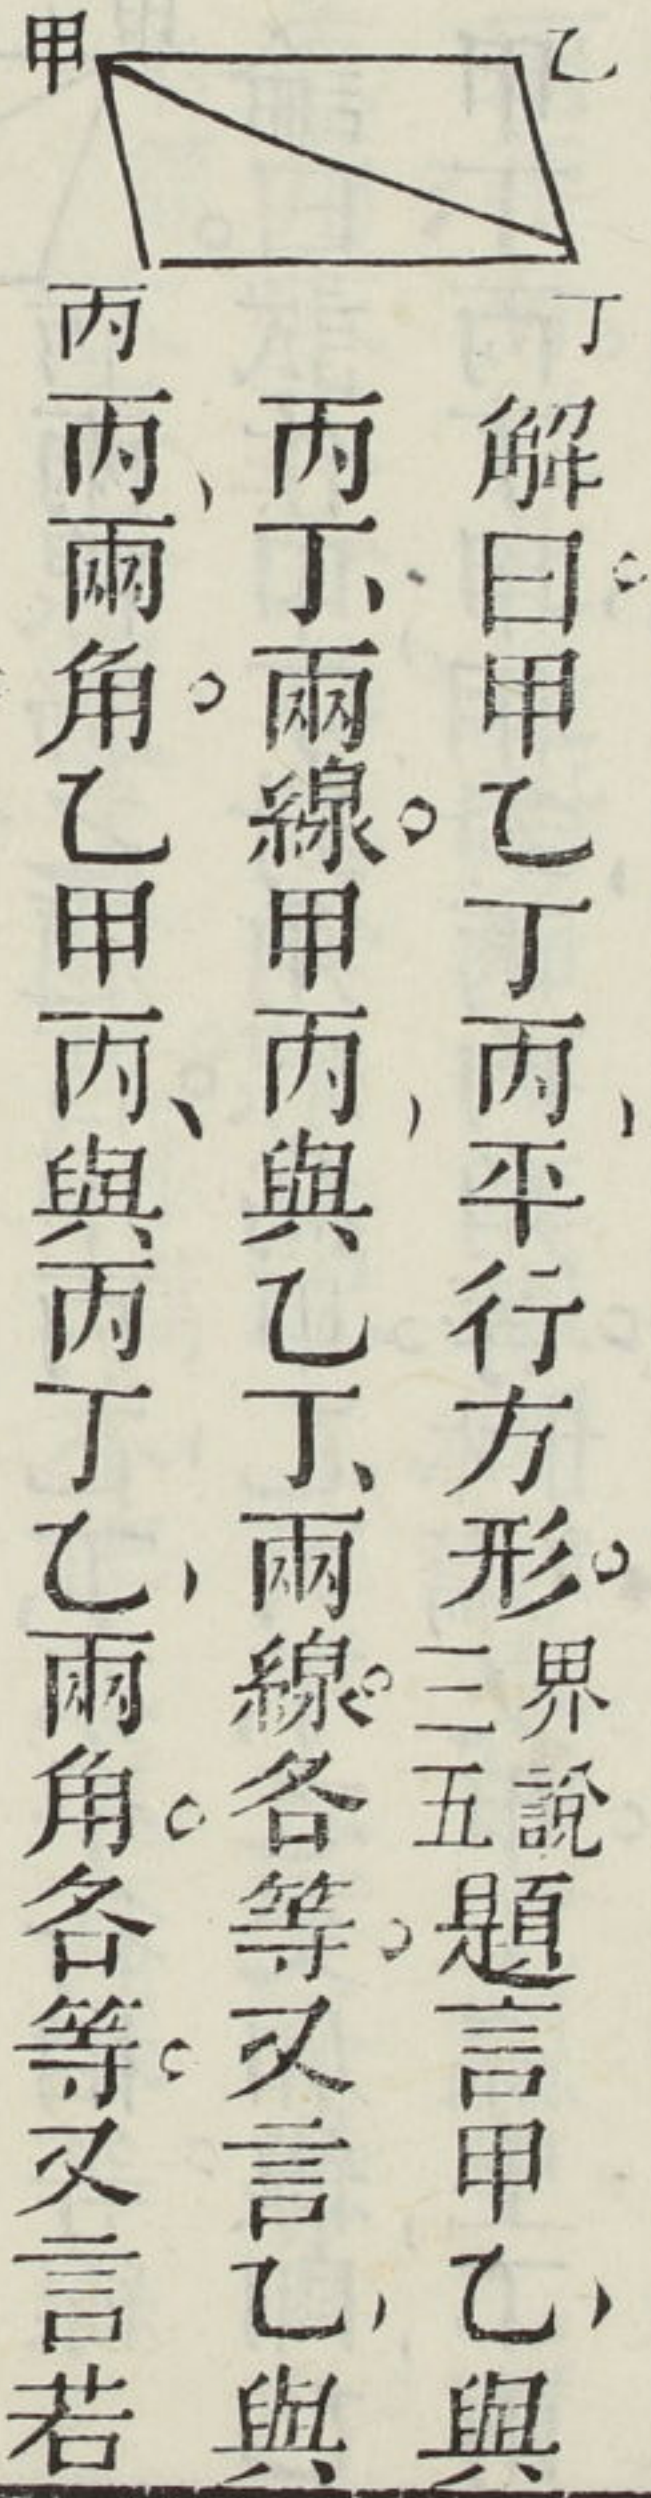 甲
乙
丙
丁
解曰甲乙丁丙平行方形。界說三五題言甲乙、與
丙丁、兩線。甲丙與乙丁、兩線。各等。又言乙、與
丙、兩角。乙甲丙、與丙丁乙、兩角。各等。又言若